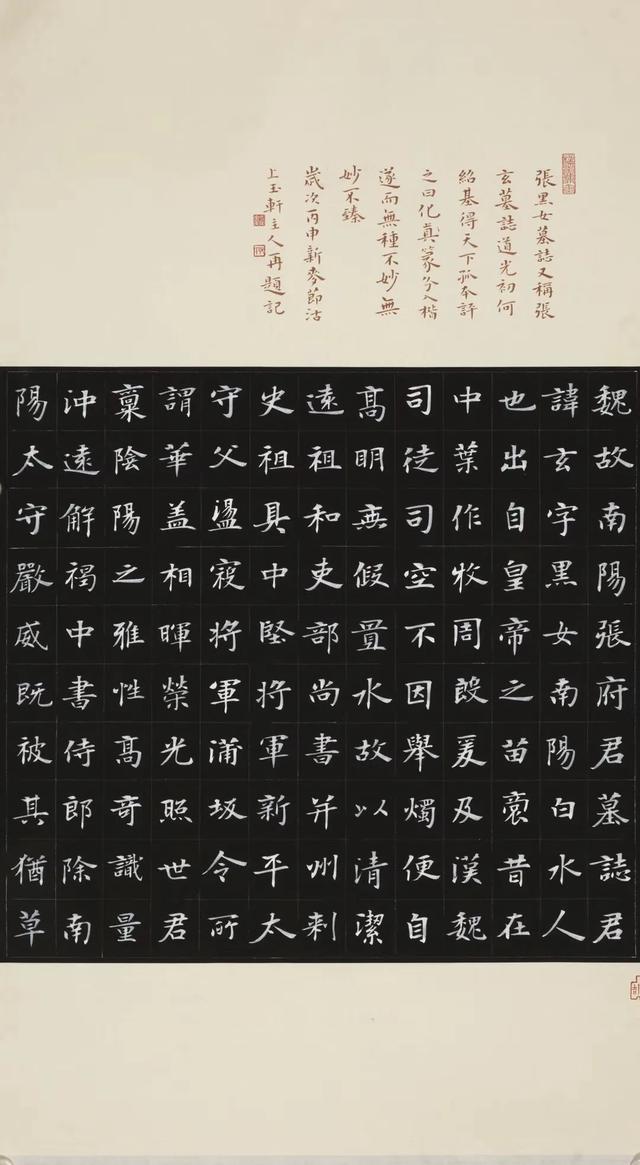 張黑女墓誌又稱張
玄墓誌道光初何
紹基得天下孤本評
之曰化真篆分入楷
遂而無種不妙無
妙不臻
歲次丙申新麥節沽
上玉軒主人再題記
魏故南陽張府君墓誌君
諱玄字黑女南陽白水人
也出自皇帝之苗裔昔在
中葉作牧周殷爰及漢魏
司徒司空不因舉燭便自
高明無假置水故以清潔
遠祖和吏部尚書并州刺
史祖具中堅將軍新平太
守父盪寇將軍蒲坂令所
謂華蓋相暉榮光照世君
稟陰陽之雅性高奇識量
沖遠解褐中書侍郎除南
陽太守嚴威既被其猶草